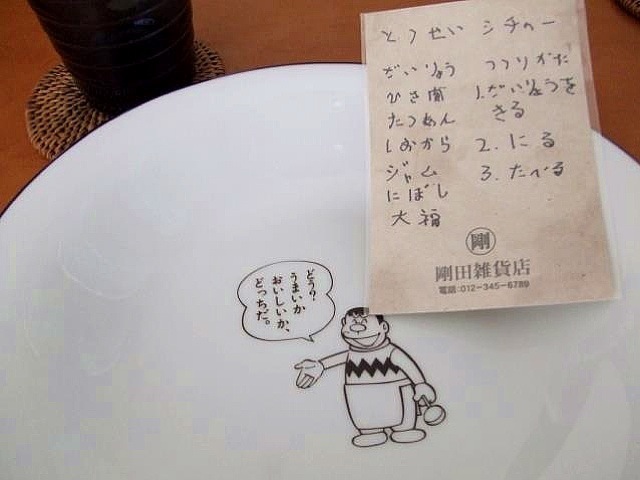 とつせい シチュー
ざいりょう
ひき肉
たつあん
しおから
ジャム
にぼし
大福
つつりかた
1.ざいりょうを
きる
2.にる
3.たべる
剛
剛田雑貨店
電話:012-345-6789
どう?
うまいか
おいしいか、
どっちだ。